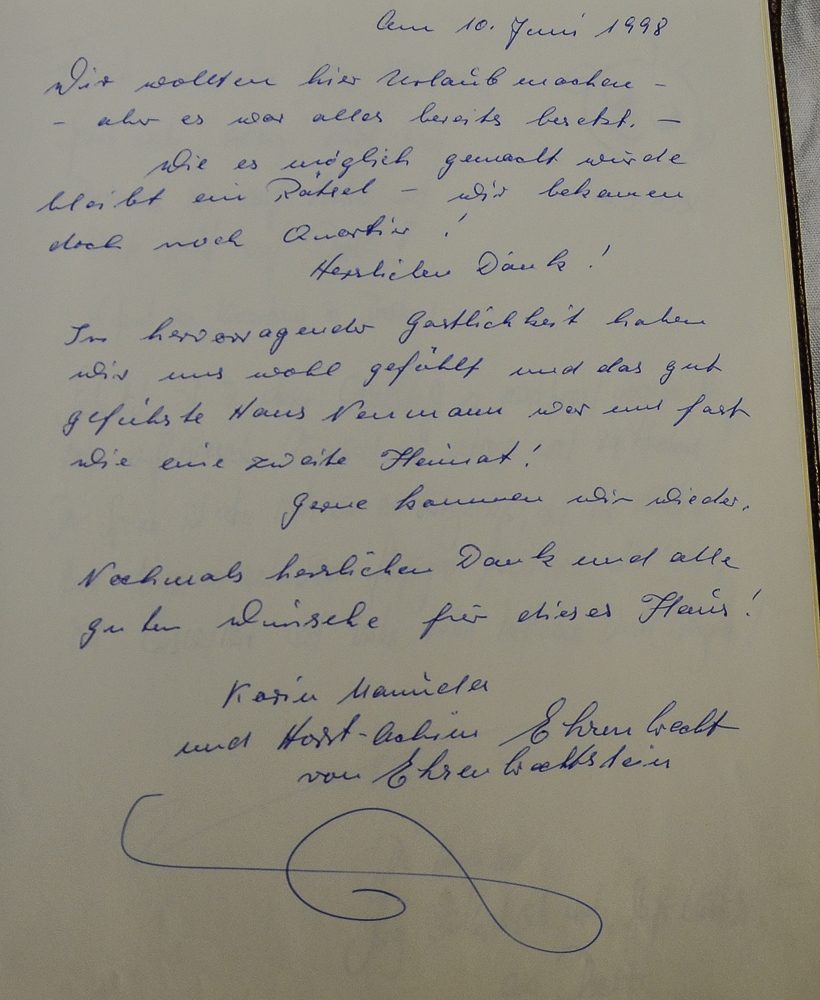 Am 10. Juni 1998
Wir wollten hier Urlaub machen -
- aber es war alles bereits besetzt. -
Wie es möglich gemacht wurde
bleibt ein Rätsel - wir bekamen
doch noch Quartier!
Herzlichen Dank!
In hervorragender Gastlichkeit haben
wir uns wohl gefühlt und das gut
geführte Haus Neumann war uns fast
wie eine zweite Heimat!
Gerne kommen wir wieder.
Nochmals herzlichen Dank und alle
guten Wünsche für dieses Haus!
Karin
und Horst-Achim Ehrenbrecht
von